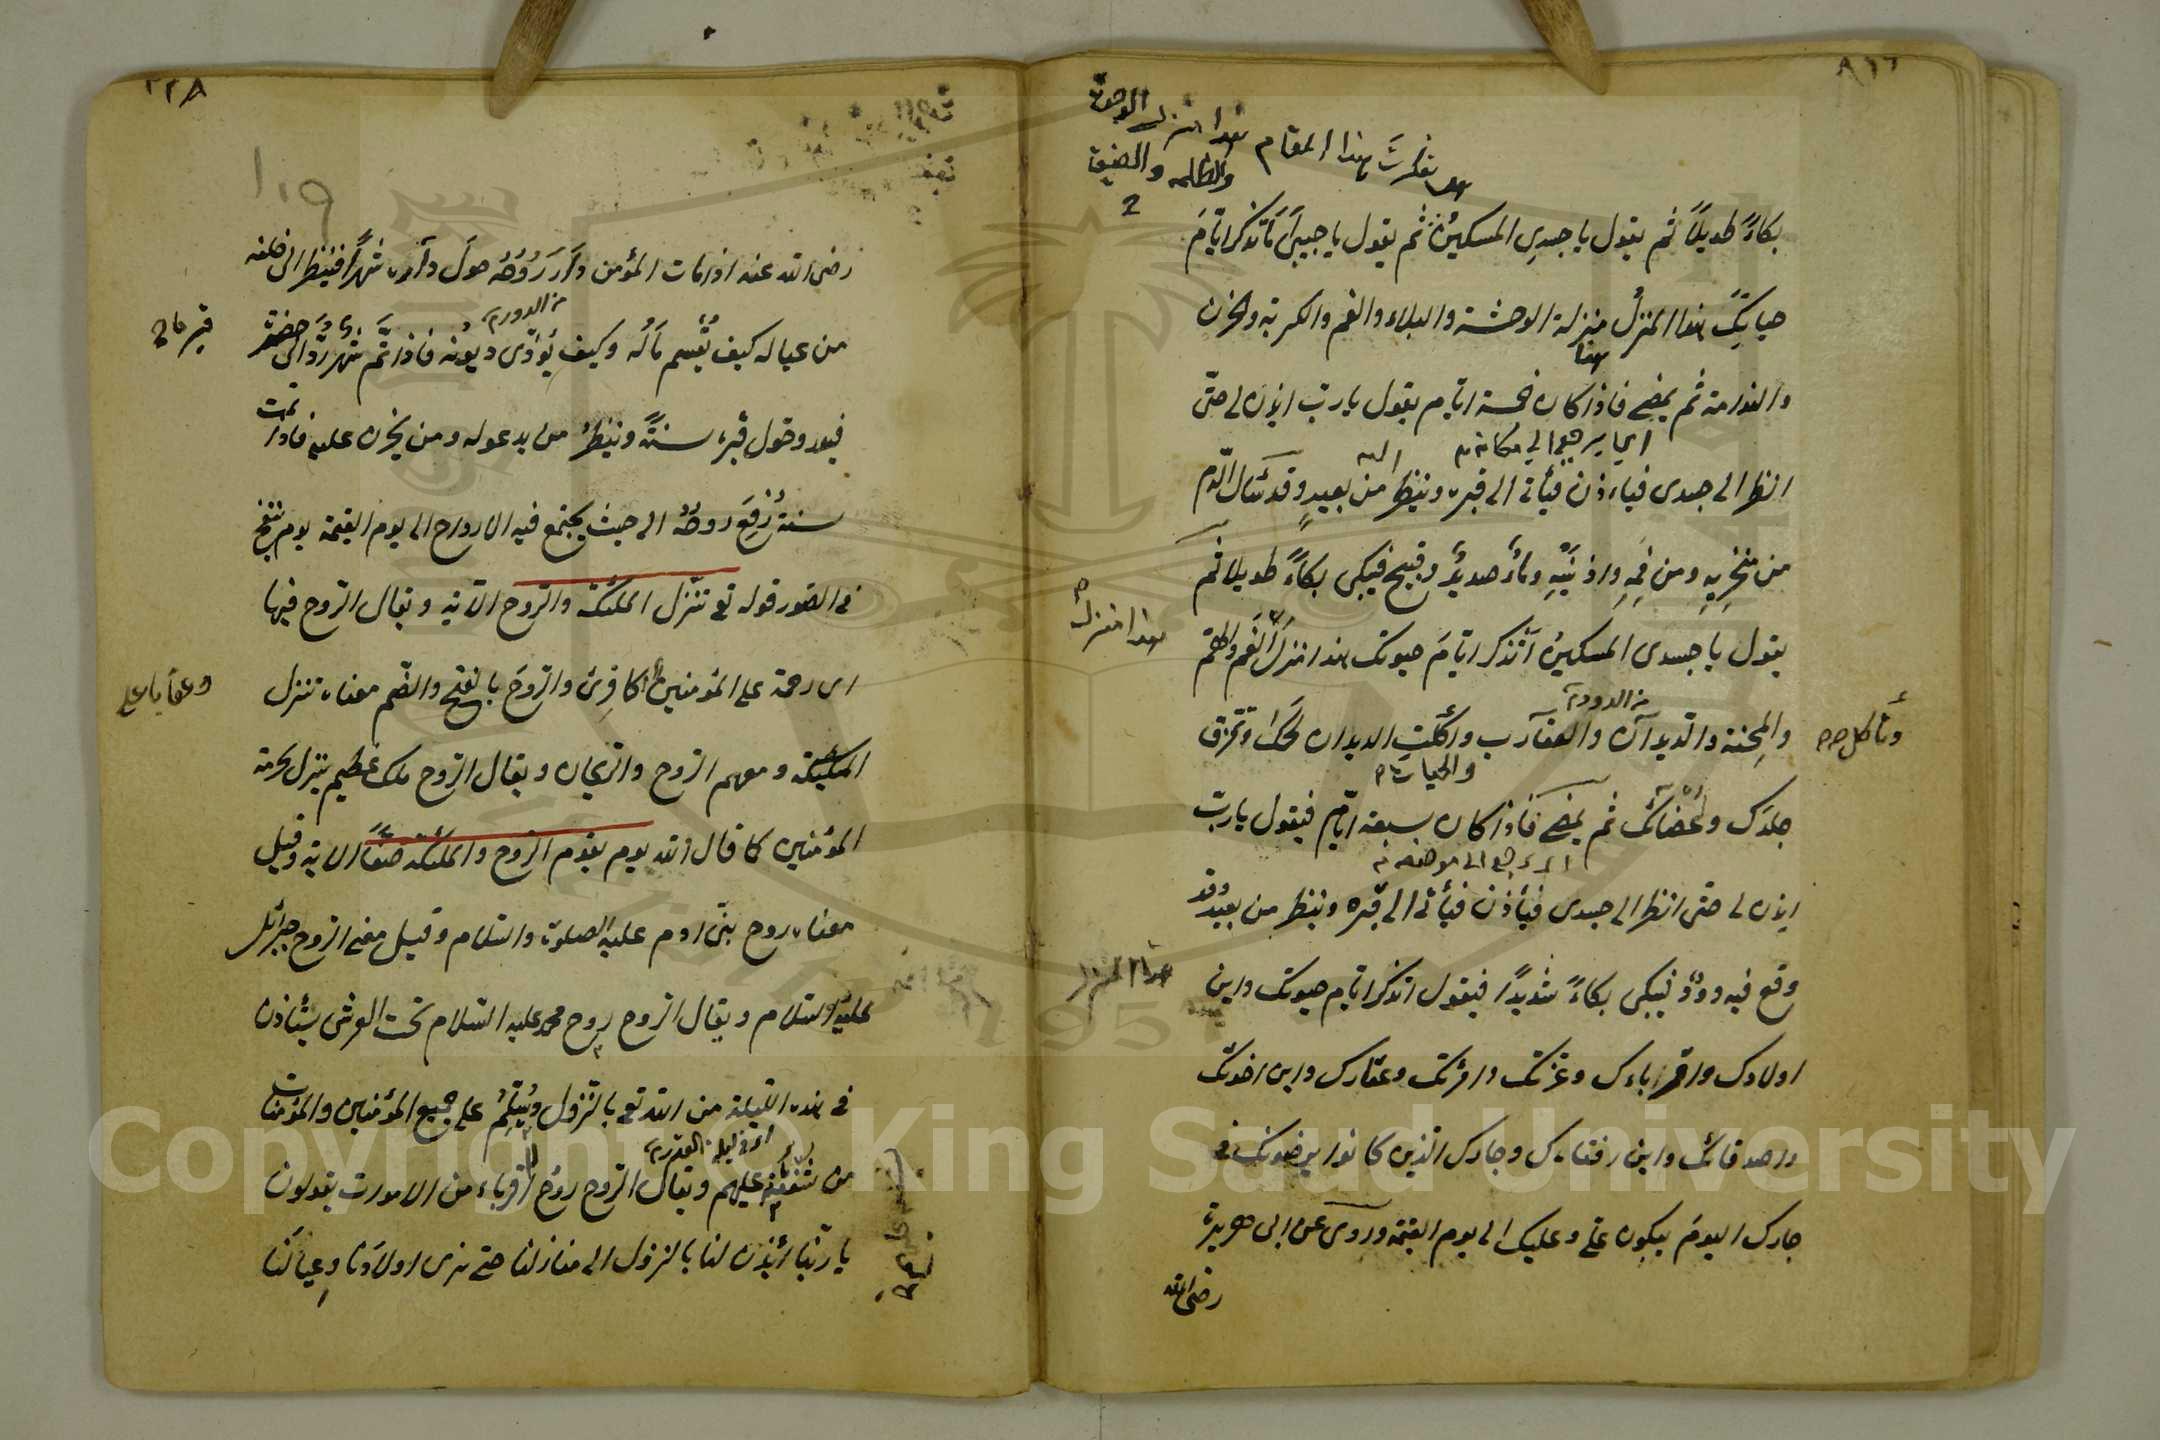 بكاءً طويلاً ثم يقول يا جسدى المسكين ثم يقول يا حبيبى اما تذكر ايام
حياتك هذا المنزل منزلة الوحشة والبلاء والغم والكربة والحزن
والندامة ثم يمضى فاذا كان خمسة ايام يقول يا رب ايذن لى حتى
انظر الى جسدى فياءذن فيأتى الى قبره وينظر من بعيد وقد سال الدم
من منخريه ومن فمه واذنيه وماء صديد وقيح فيبكى بكاءً طويلا ثم
يقول يا جسدى المسكين أتذكر ايام حيوتك هذا منزل الغم والهم
والمحنة والديدان والعقارب واكلت الديدان لحمك وتمزق
جلدك واعضائك ثم يمضى فاذا كان سبعة ايام فيقول يا رب
ايذن لى حتى انظر الى جسدى فيأذن فيأتى الى قبره وينظر من بعيد وقد
وقع فيه دود فيبكى بكاءً شديدًا فيقول اتذكر ايام حيوتك واين
اولادك واقرباءك وعزتك وامرئتك وعقارك واين اخوتك
واصدقائك واين رفقاءك وجارك الذين كانوا يرضونك فى
جارك اليوم يبكون على وعليك الى يوم القيمة وروى عن ابى هريرة
رضى الله
هذا المقام
والظلمه والضيق
اى يرجع الى مكانه
هذا منزل
وتأكل
من الدود
والحيات
اى يرجع الى موضعه
٢٢٨
١٠٩
رضى الله عنه اذا مات المؤمن دار روحه حول داره شهرًا فينظر الى خلفه
من عياله كيف يقسم ماله وكيف يؤدى ديونه فاذا تم شهر رد الى حفرته
فيدور حول قبره سنةً وينظر من يدعو له ومن يحزن عليه فاذا تمت
سنة رفع روحه الى حيث يجتمع فيه الارواح الى يوم القيمة يوم ينفخ
فى الصور قوله تع تنزل الملئكة والروح الآية ويقال الروح فيها
اى رحمة على المؤمنين الكافرين والروح بالفتح والضم معناه تنزل
الملئكة ومعهم الروح والريحان ويقال الروح ملك عظيم ينزل لحرمة
المؤمنين كما قال الله يوم يقوم الروح والملئكة صفًا الاية وقيل
معناه روح بنى ادم عليه الصلوة والسلام وقيل معنى الروح جبرائيل
عليه السلام ويقال الروح روح محمد عليه السلام تحت العرش يستأذن
فى هذه الليلة من الله تع بالنزول ويسلم على جميع المؤمنين والمؤمنات
من شفقته عليهم ويقال الروح روح اقرباء من الاموات يقولون
يا ربنا ائذن لنا بالنزول الى منازلنا حتى نرى اولادنا وعيالنا
قبره
وعقابا على
اى فى ليلة القدر
Copyright © King Saud University
1957